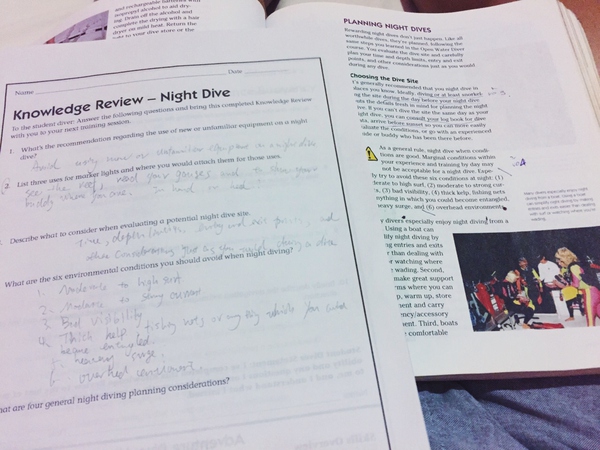 and rechargeable batteries with
isopropyl alcohol to aid dry-
ing. Drain off the alcohol and
complete the drying with a hair
dryer on mild heat. Return the
to your dive store or the
Name
Date
Knowledge Review – Night Dive
To the student diver: Answer the following questions and bring this completed Knowledge Review
with you to your next training session.
1. What's the recommendation regarding the use of new or unfamiliar equipment on a night
dive?
Avoid using new or unfamiliar equipment on a night dive
2. List three uses for marker lights and where you would attach them for those uses.
see the reef, read your gauges
buddy where you are.
Describe what to consider when evaluating a potential night dive site.
Time, depth limits, entry and exit
What are the six environmental conditions you should avoid when night diving?
1. Moderate to high surf.
2. Moderate to strong current
3. Bad visibility
4. Thick kelp, fishing nets or anything which you could
become entangled.
5. heavy surge
6. overhead environment
What are four general night diving planning considerations?
PLANNING NIGHT DIVES
Rewarding night dives don't just happen. Like all
worthwhile dives, they're planned, following the
same steps you learned in the Open Water Diver
course. You evaluate the dive site and carefully
plan your time and depth limits, entry and exit
points, and other considerations just as you would
during any dive.
Choosing the Dive Site
It's generally recommended that you night dive in
places you know. Ideally, diving or at least snorkel-
ing the site during the day before your night dive
puts the details fresh in mind for planning the night
dive. If you can't dive the site the same day as your
night dive, you can consult your log book for dive
data, arrive before sunset so you can more easily
evaluate the conditions, or go with an experienced
guide or buddy who has been there before.
As a general rule, night dive when condi-
tions are good. Marginal conditions within
your experience and training by day may
not be acceptable for a night dive. Espe-
cially try to avoid these six conditions at night: (1)
moderate to high surf, (2) moderate to strong cur-
rents, (3) bad visibility, (4) thick kelp, fishing nets
anything in which you could become entangled,
heavy surge, and (6) overhead environments.
divers especially enjoy night diving from a
Using a boat can
night diving by
ing entries and exits
than dealing with
or watching where
wading. Second,
make great support
where you can
up, warm up, store
ment and carry
ency/accessory
ment. Third, boats
comfortable
Many divers especially enjoy
night diving from a boat. Using a boat
can simplify night diving by making
entries and exits easier than dealing
with surf or watching where you're
wading.